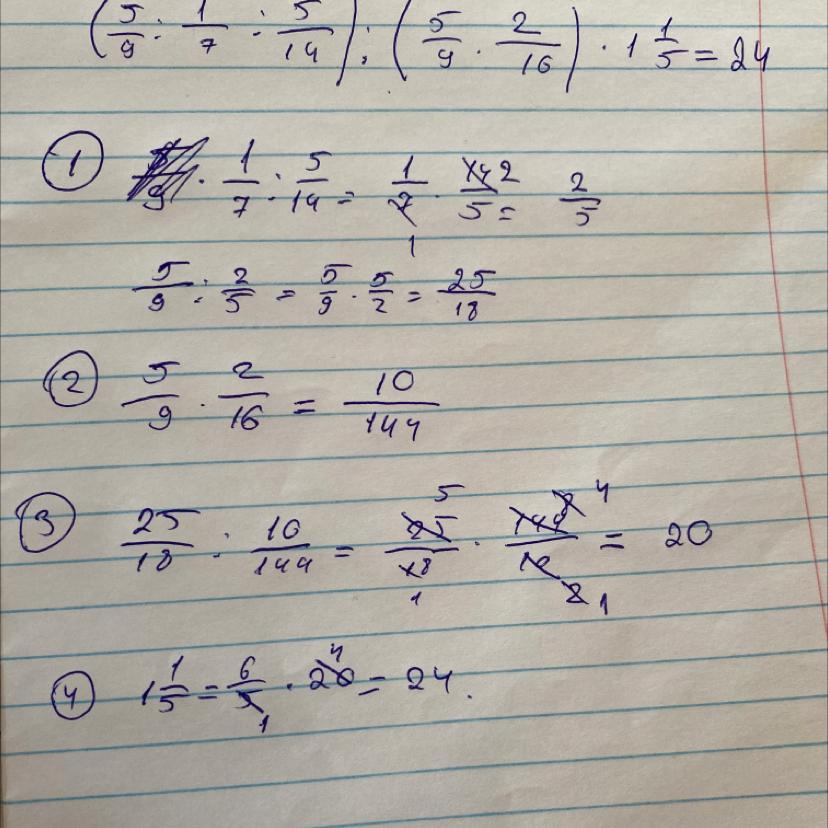 (5/9 : 1/7 : 5/14) : (5/9 · 2/16) · 1 1/5 = 24
① · 1/7 : 5/14 = 1/7 · 14/5 = 2/5
5/9 : 2/5 = 5/9 · 5/2 = 25/18
② 5/9 · 2/16 = 10/144
③ 25/18 : 10/144 = 25/18 · 144/10 = 20
④ 1 1/5 = 6/5 · 20 = 24.